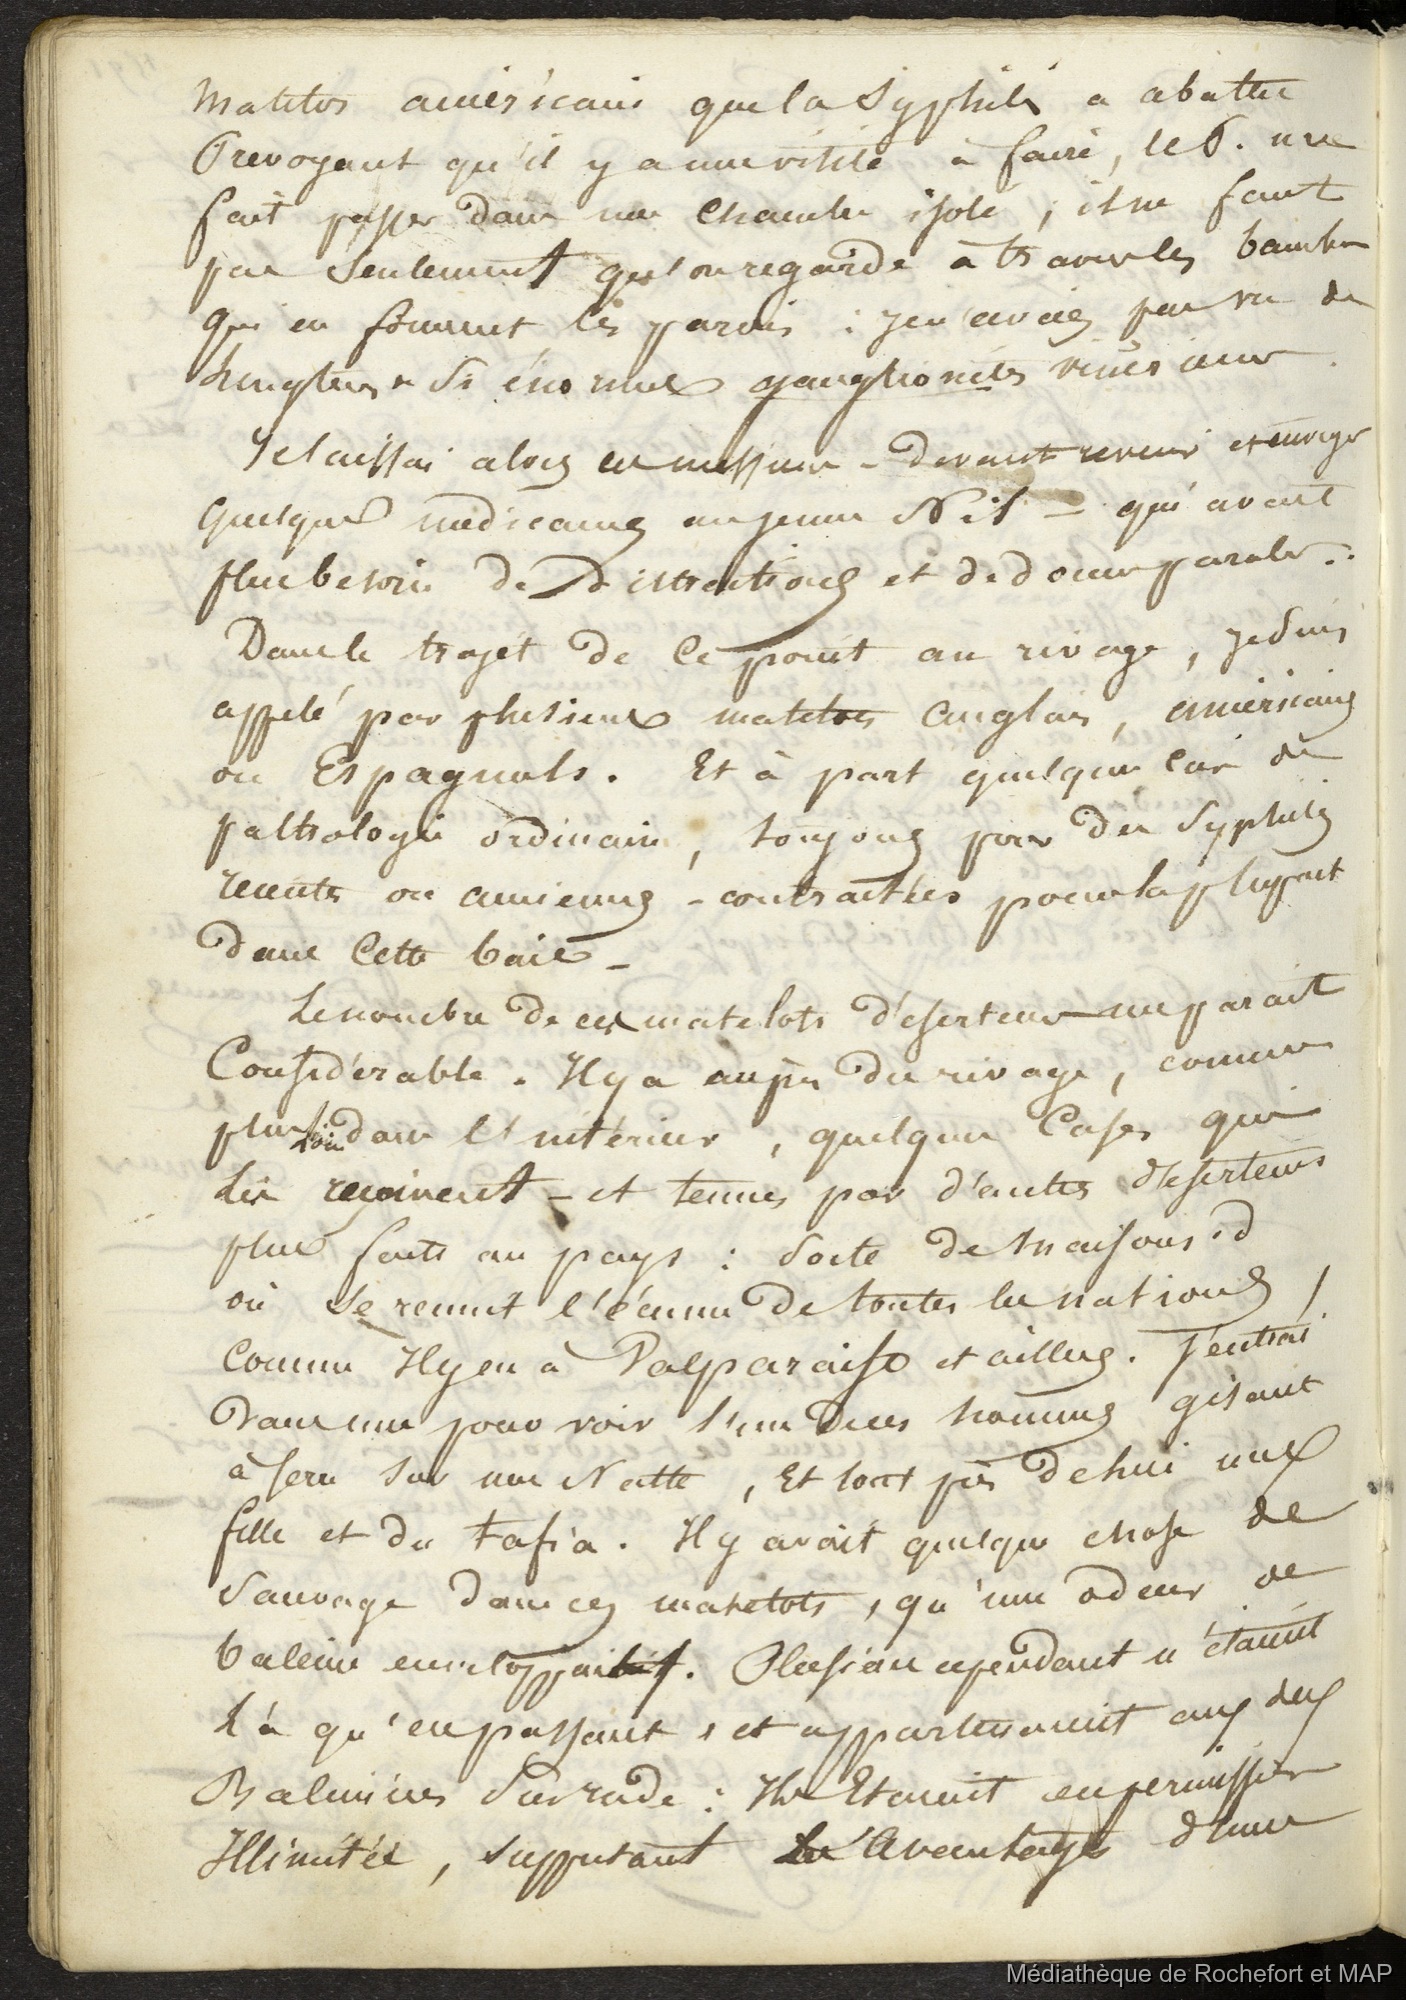 matelots américains que la Syphilis a abattu
Prevoyant qu'il y a une visite à faire, le P. me
fait passer dans une Chambre isolé ; il ne faut
pas Seulement qu'on regarde à travers les bambous
qui en forment les parois : je n'avais pas vu de
si énormes ganglionites
Je laissai alors ces messieurs - devant revenir et envoyer
quelques médicamens au jeune Nil - qui avait
plus besoin de Distractions et de douces paroles.
Dans le trajet de ce point au rivage, je suis
appelé par plusieurs matelots anglais, américains
ou Espagnols. Et à part quelques cas de
pathologie ordinaire, toujours pour des Syphilis
recentes ou anciennes - contractées pour la plupart
dans Cette baie -
Le nombre de ces matelots déserteurs me parait
Considérable. Il y a auprès du rivage, comme
plus loin dans l'intérieur, quelques Cases qui
les reçoivent - et tenues par d'autres déserteurs
plus faits au pays : Sorte de maisons
où se reunit l'écume de toutes les nations,
comme Il y en a à Valparaiso et ailleurs. J'entrai
Dans une pour voir l'un de ces hommes gisant
à terre sur une Natte, Et tout près de lui une
fille et du tafia. Il y avait quelque chose de
Sauvage dans ces matelots, qu'une odeur de
baleine enveloppait. Plusieurs cependant n'étaient
là qu'en passant, et appartenaient aux deux
Baleinières Sur rade : Ils Etaient en permission
Illimitée, supputant les Avantages d'une